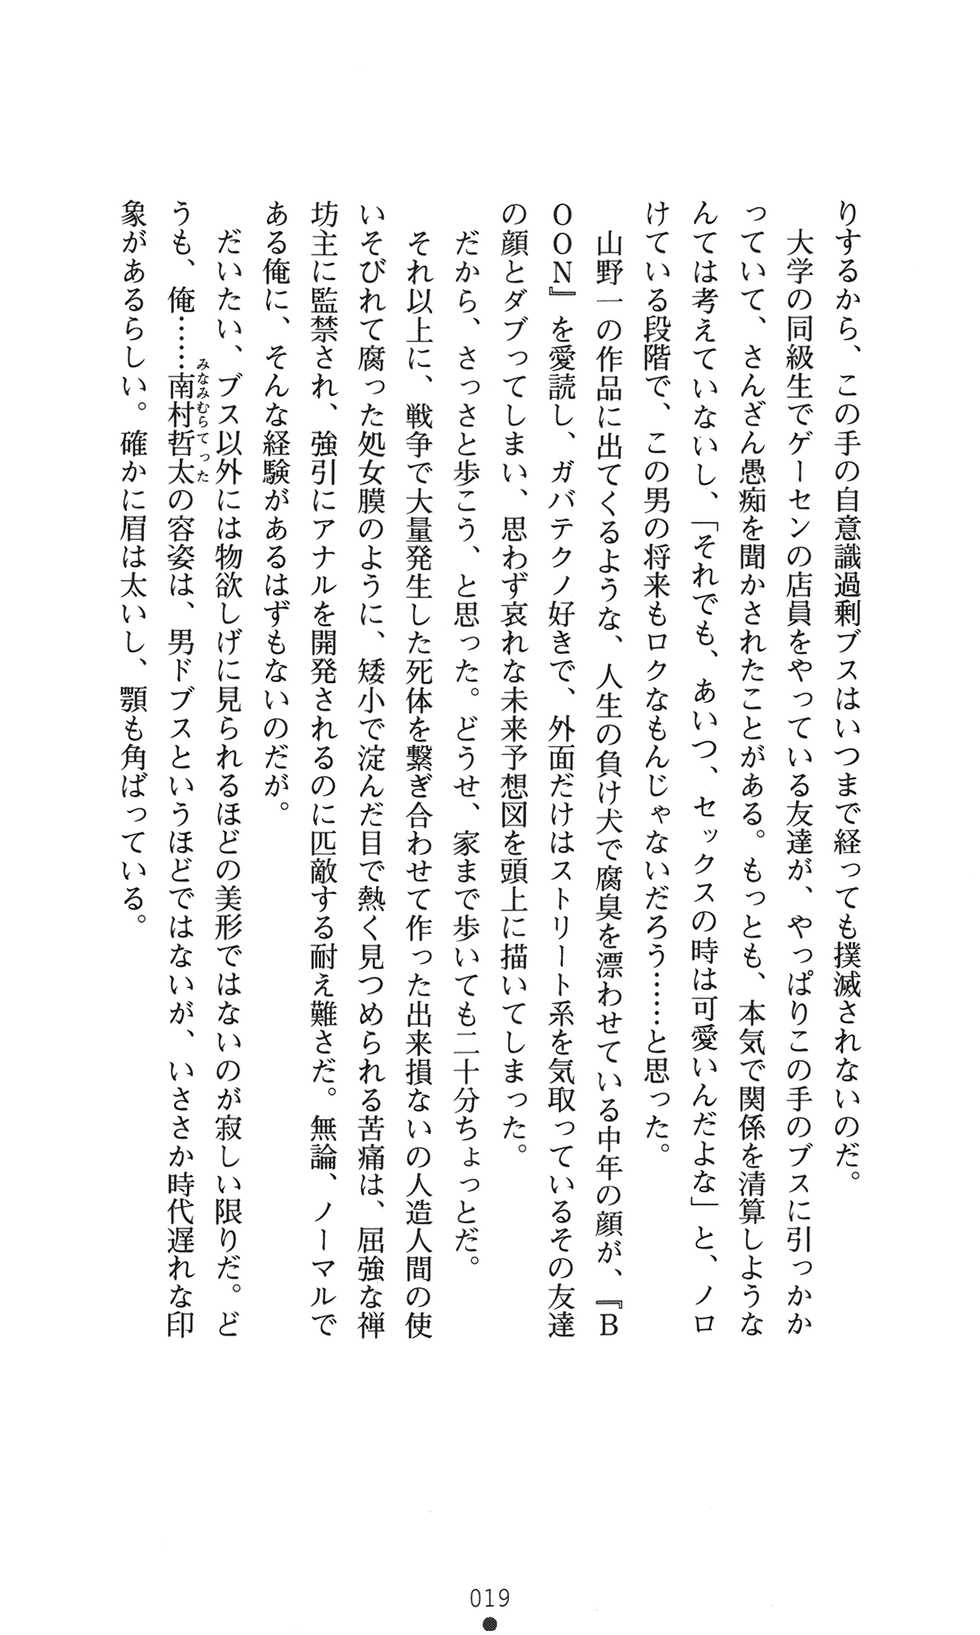 りするから、この手の自意識過剰ブスはいつまで経っても撲滅されないのだ。
大学の同級生でゲーセンの店員をやっている友達が、やっぱりこの手のブスに引っかか
っていて、さんざん愚痴を聞かされたことがある。もっとも、本気で関係を清算しような
んては考えていないし、「それでも、あいつ、セックスの時は可愛いんだよな」と、ノロ
けている段階で、この男の将来もロクなもんじゃないだろう……と思った。
山野一の作品に出てくるような、人生の負け犬で腐臭を漂わせている中年の顔が、『B
OON』を愛読し、ガバテクノ好きで、外面だけはストリート系を気取っているその友達
の顔とダブってしまい、思わず哀れな未来予想図を頭上に描いてしまった。
だから、さっさと歩こう、と思った。どうせ、家まで歩いても二十分ちょっとだ。
それ以上に、戦争で大量発生した死体を繋ぎ合わせて作った出来損ないの人造人間の使
いそびれて腐った処女膜のように、矮小で淀んだ目で熱く見つめられる苦痛は、屈強な禅
坊主に監禁され、強引にアナルを開発されるのに匹敵する耐え難さだ。無論、ノーマルで
ある俺に、そんな経験があるはずもないのだが。
だいたい、ブス以外には物欲しげに見られるほどの美形ではないのが寂しい限りだ。ど
うも、俺……南村哲太の容姿は、男ドブスというほどではないが、いささか時代遅れな印
みなみむらてった
象があるらしい。確かに眉は太いし、顎も角ばっている。
019